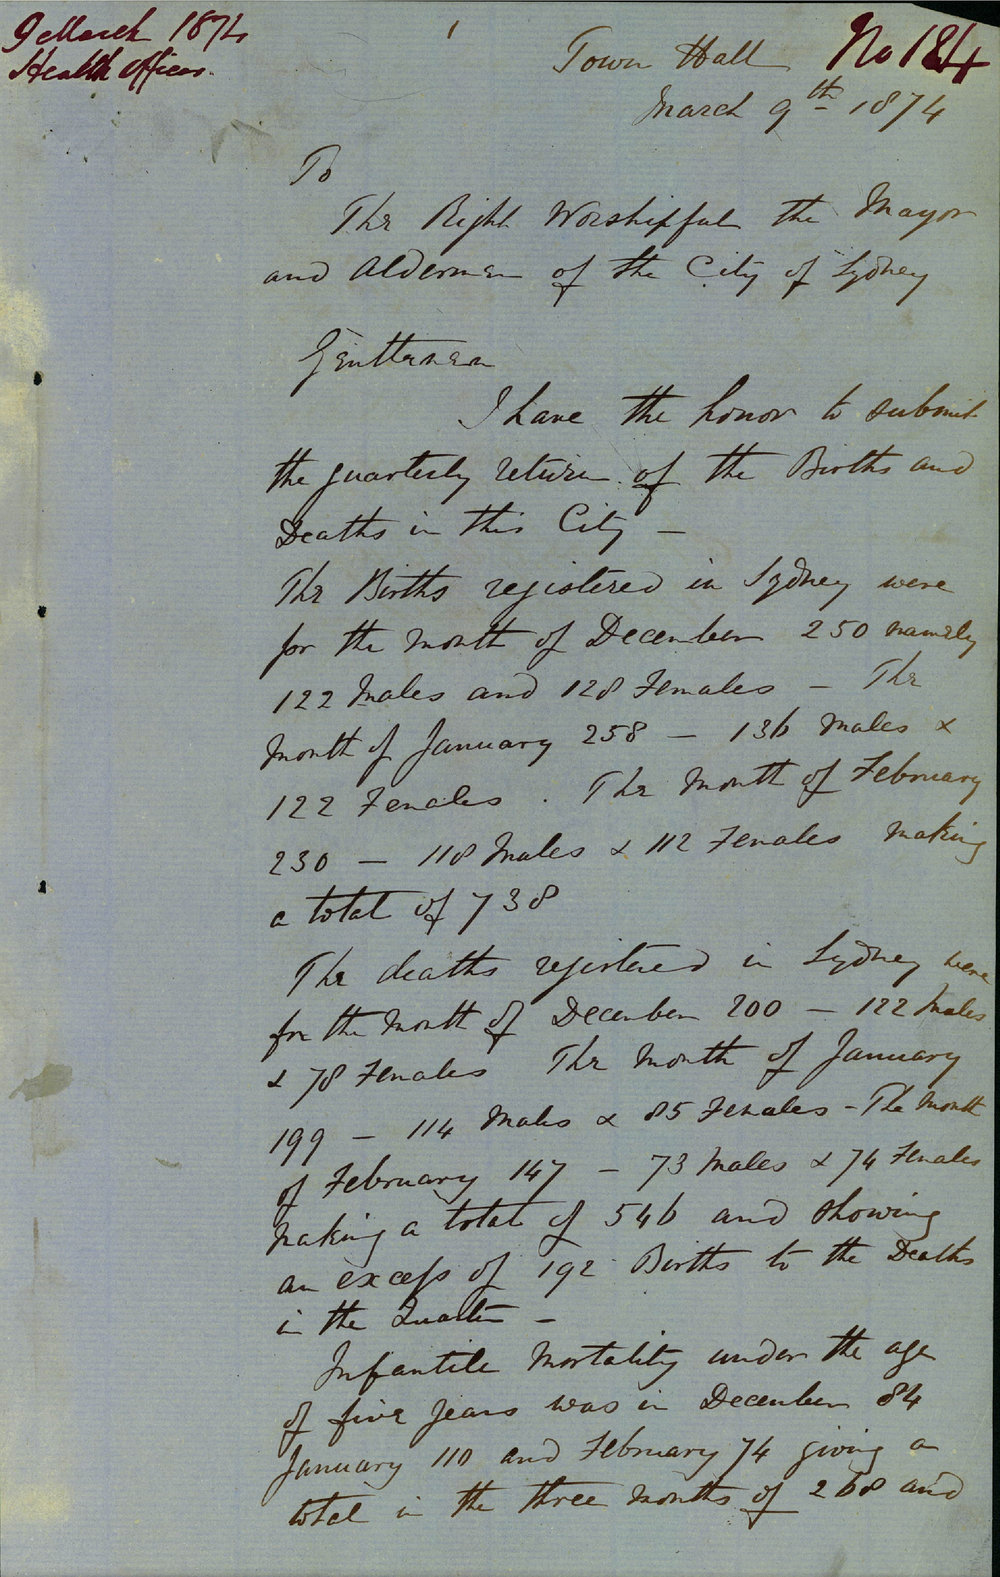 9 March 1874
Health Officer.
Town Hall
No 184
March 9th 1874
To
The Right Worshipful the Mayor
and Aldermen of the City of Sydney
Gentlemen
I have the honor to submit
the quarterly return of the Births and
Deaths in this City —
The Births registered in Sydney were
for the month of December 250 namely
122 Males and 128 Females — The
Month of January 258 — 136 Males &
122 Females . The Month of February
230 — 118 Males & 112 Females making
a total of 738
The deaths registered in Sydney were
for the Month of December 200 — 122 Males
& 78 Females The Month of January
199 — 114 Males & 85 Females — The Month
of February 147 — 73 Males & 74 Females
making a total of 546 and showing
an excess of 192 Births to the Deaths
in the Quarter —
Infantile Mortality under the age
of five years was in December 84
January 110 and February 74 giving a
total in the three months of 268 and